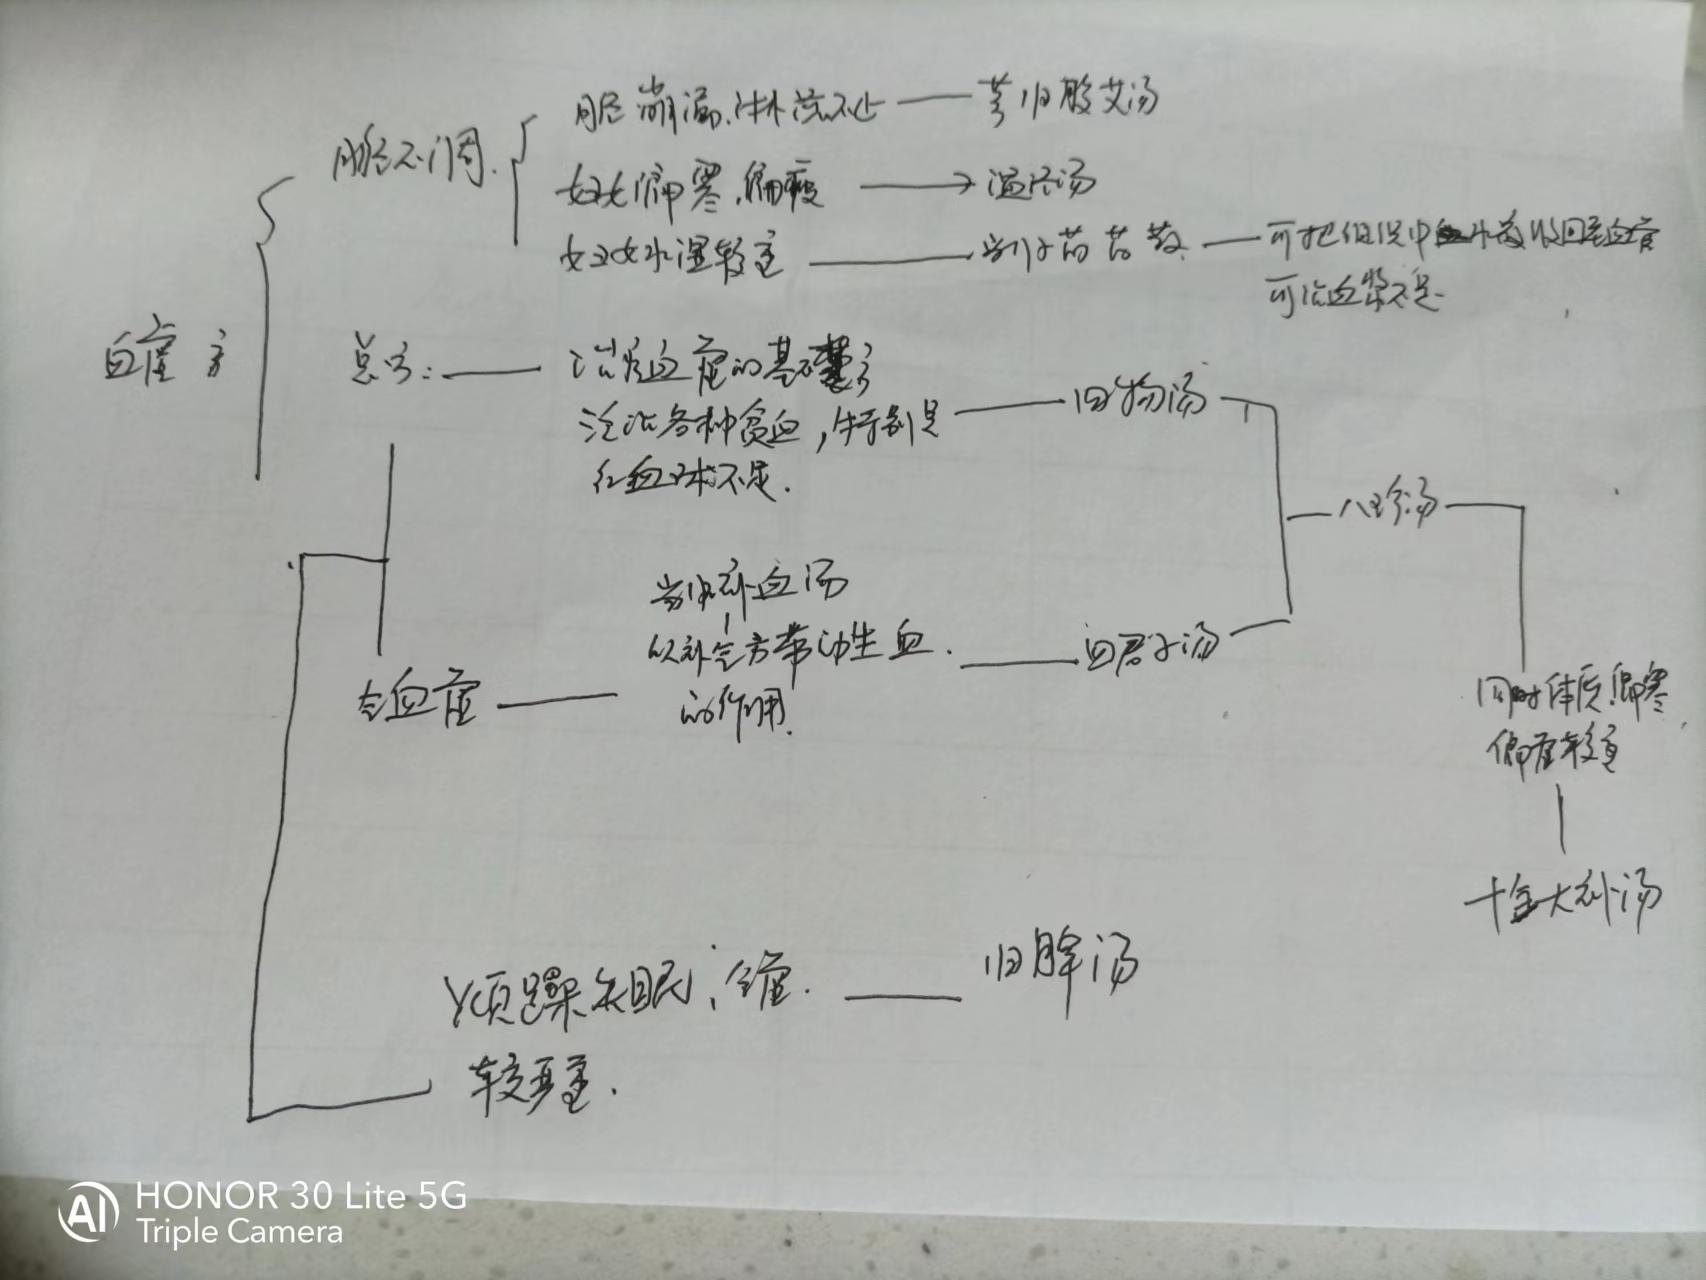 月经崩漏、淋漓不止 —— 芎归胶艾汤
月经不调.
妇女偏寒,偏瘦 ——> 温经汤
妇女水湿较重 —— 当归芍药散 —— 可把组织中水液收回至血管
可治血浆不足.
血虚方
总方: —— 治疗血虚的基本方
泛治各种贫血,特别是 —— 四物汤
红血球不足.
八珍汤
当归补血汤
以补气方带动生血. —— 四君子汤
的作用.
气血虚
同时体质偏寒
偏虚较重
十全大补汤
烦躁失眠,气虚. —— 归脾汤
较严重.
HONOR 30 Lite 5G
Triple Camera
AI